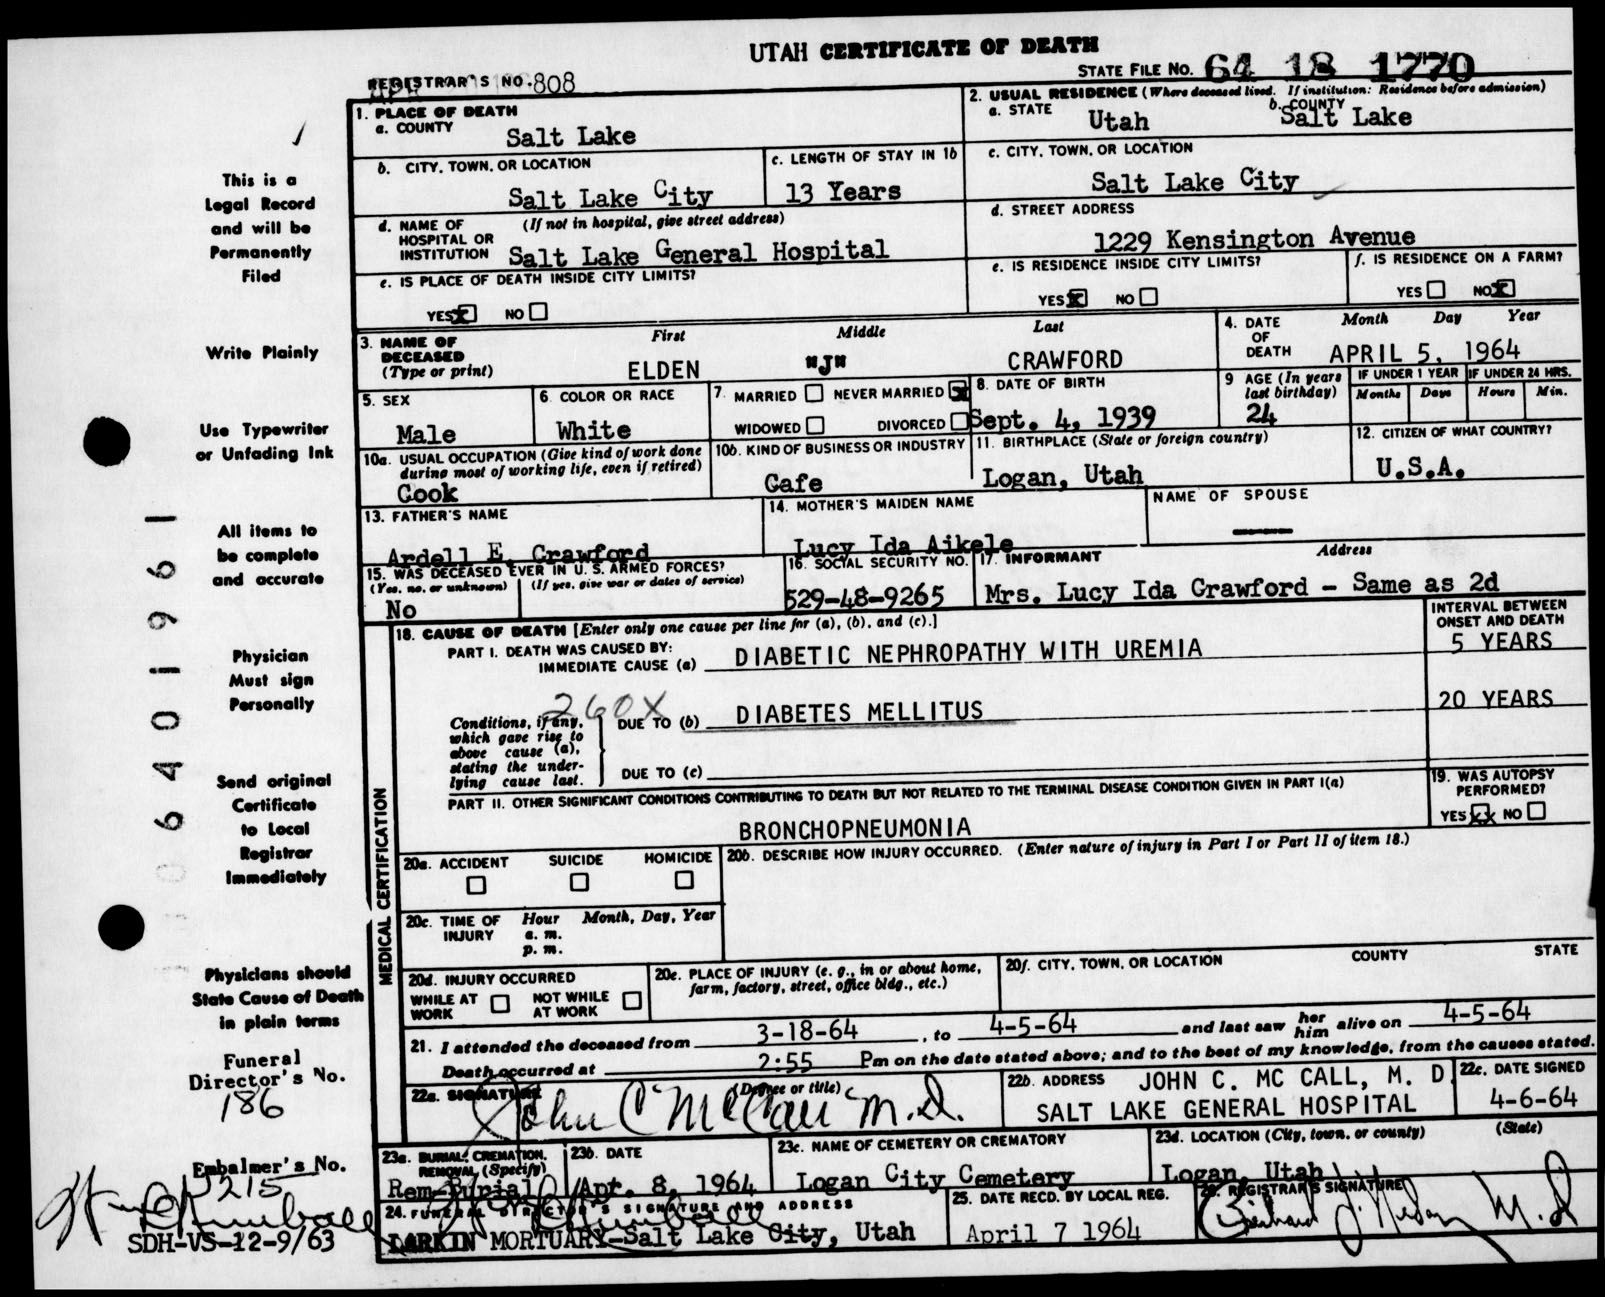 UTAH CERTIFICATE OF DEATH
REGISTRAR'S NO. 808
STATE FILE NO. 64 18 1770
1. PLACE OF DEATH
a. COUNTY Salt Lake
2. USUAL RESIDENCE (Where deceased lived. If institution: Residence before admission)
a. STATE Utah b. COUNTY Salt Lake
b. CITY, TOWN, OR LOCATION Salt Lake City
c. LENGTH OF STAY IN 1b 13 Years
c. CITY, TOWN, OR LOCATION Salt Lake City
d. NAME OF HOSPITAL OR INSTITUTION (If not in hospital, give street address) Salt Lake General Hospital
d. STREET ADDRESS 1229 Kensington Avenue
e. IS PLACE OF DEATH INSIDE CITY LIMITS? YES X NO
e. IS RESIDENCE INSIDE CITY LIMITS? YES X NO
f. IS RESIDENCE ON A FARM? YES NO X
3. NAME OF DECEASED (Type or print)
First Middle Last
ELDEN "J" CRAWFORD
4. DATE OF DEATH Month Day Year
APRIL 5, 1964
5. SEX Male
6. COLOR OR RACE White
7. MARRIED NEVER MARRIED X
WIDOWED DIVORCED
8. DATE OF BIRTH Sept. 4, 1939
9 AGE (In years last birthday) 24
IF UNDER 1 YEAR Months Days
IF UNDER 24 HRS. Hours Min.
10a. USUAL OCCUPATION (Give kind of work done during most of working life, even if retired) Cook
10b. KIND OF BUSINESS OR INDUSTRY Cafe
11. BIRTHPLACE (State or foreign country) Logan, Utah
12. CITIZEN OF WHAT COUNTRY? U.S.A.
13. FATHER'S NAME Ardell E. Crawford
14. MOTHER'S MAIDEN NAME Lucy Ida Aikele
NAME OF SPOUSE ----
15. WAS DECEASED EVER IN U. S. ARMED FORCES? (Yes, no, or unknown) (If yes, give war or dates of service) No
16. SOCIAL SECURITY NO. 529-48-9265
17. INFORMANT Address
Mrs. Lucy Ida Crawford - Same as 2d
18. CAUSE OF DEATH [Enter only one cause per line for (a), (b), and (c).]
INTERVAL BETWEEN ONSET AND DEATH
PART I. DEATH WAS CAUSED BY:
IMMEDIATE CAUSE (a) DIABETIC NEPHROPATHY WITH UREMIA 5 YEARS
260X
Conditions, if any, which gave rise to above cause (a), stating the underlying cause last.
DUE TO (b) DIABETES MELLITUS 20 YEARS
DUE TO (c)
PART II. OTHER SIGNIFICANT CONDITIONS CONTRIBUTING TO DEATH BUT NOT RELATED TO THE TERMINAL DISEASE CONDITION GIVEN IN PART I(a)
BRONCHOPNEUMONIA
19. WAS AUTOPSY PERFORMED? YES XX NO
MEDICAL CERTIFICATION
20a. ACCIDENT SUICIDE HOMICIDE
20b. DESCRIBE HOW INJURY OCCURRED. (Enter nature of injury in Part I or Part II of item 18.)
20c. TIME OF INJURY Hour Month, Day, Year
a. m.
p. m.
20d. INJURY OCCURRED
WHILE AT WORK NOT WHILE AT WORK
20e. PLACE OF INJURY (e. g., in or about home, farm, factory, street, office bldg., etc.)
20f. CITY, TOWN, OR LOCATION COUNTY STATE
21. I attended the deceased from 3-18-64, to 4-5-64 and last saw her him alive on 4-5-64
Death occurred at 2:55 Pm on the date stated above; and to the best of my knowledge, from the causes stated.
22a. SIGNATURE (Degree or title) John C McCall M.D.
22b. ADDRESS JOHN C. MC CALL, M. D.
SALT LAKE GENERAL HOSPITAL
22c. DATE SIGNED 4-6-64
23a. BURIAL, CREMATION, REMOVAL, (Specify) Rem-Burial
23b. DATE Apr. 8, 1964
23c. NAME OF CEMETERY OR CREMATORY Logan City Cemetery
23d. LOCATION (City, town, or county) (State) Logan, Utah
24. FUNERAL DIRECTOR'S SIGNATURE AND ADDRESS
LARKIN MORTUARY-Salt Lake City, Utah
25. DATE RECD. BY LOCAL REG. April 7 1964
26. REGISTRAR'S SIGNATURE M.D
This is a
Legal Record
and will be
Permanently
Filed
Write Plainly
Use Typewriter
or Unfading Ink
All items to
be complete
and accurate
Physician
Must sign
Personally
Send original
Certificate
to Local
Registrar
Immediately
Physicians should
State Cause of Death
in plain terms
Funeral
Director's No.
186
Embalmer's No.
1215
SDH-VS-12-9/63
0 6 4 0 1 9 6 1